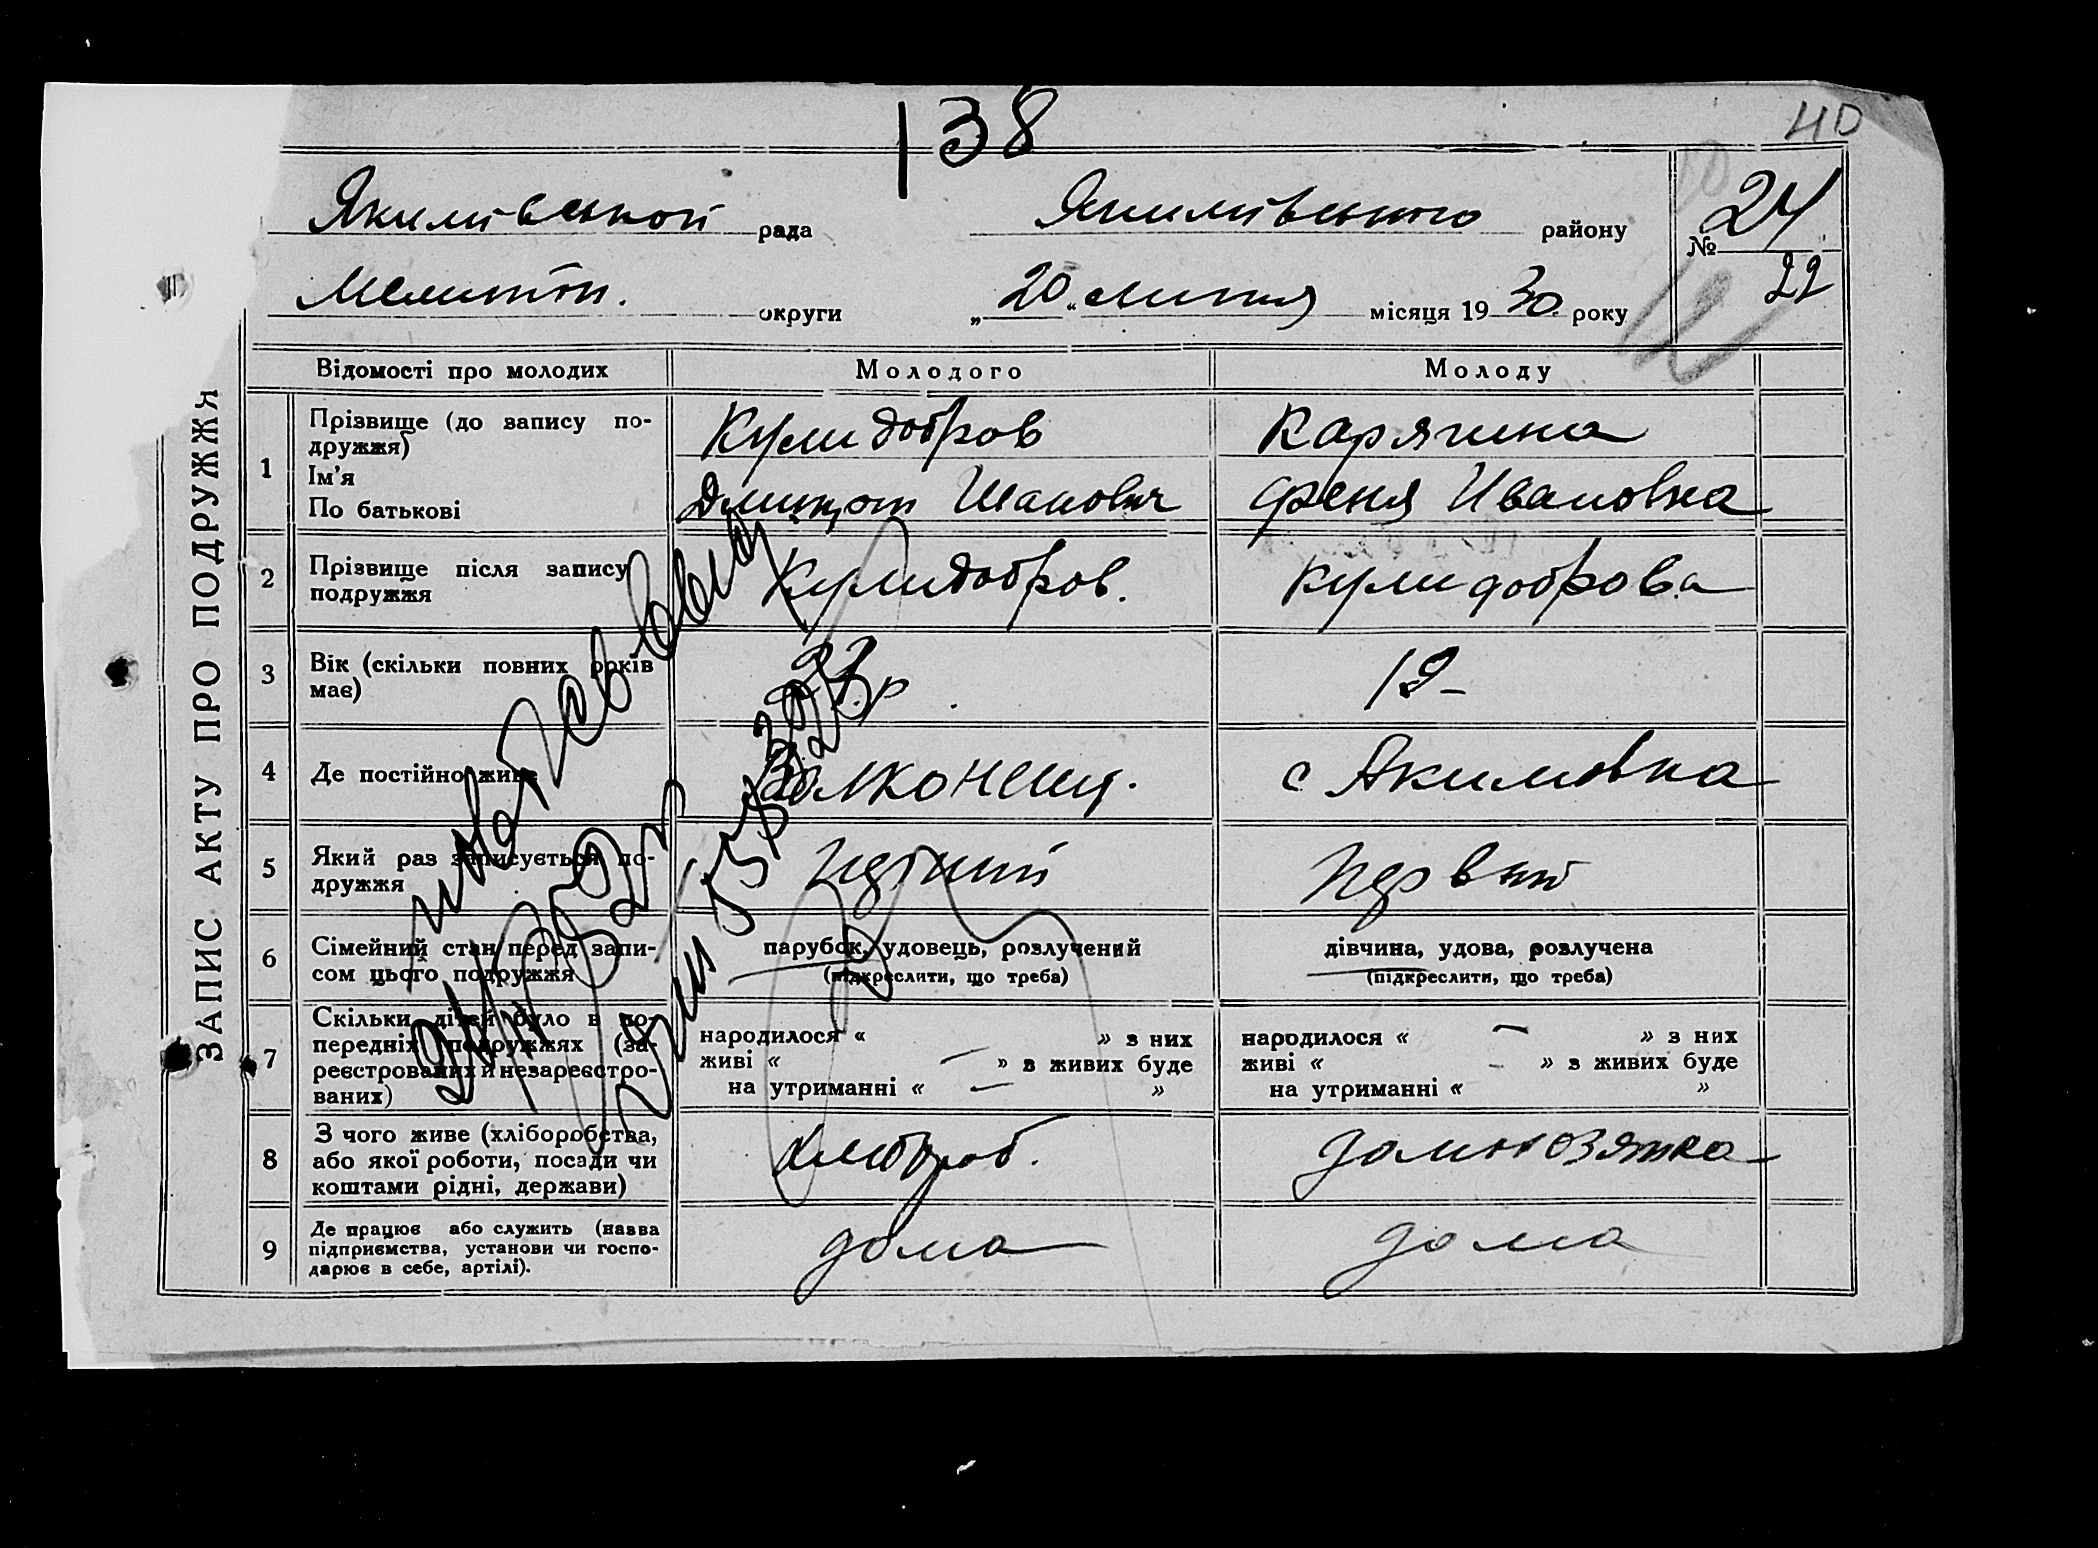 138
40
Якимівської рада Якимівського району № 24
22
Мелитоп. округи „20“ липня місяця 1930 року
12
ЗАПИС АКТУ ПРО ПОДРУЖЖЯ
Відомості про молодих Молодого Молоду
1 Прізвище (до запису по-
дружжя) Кулидобров Карягина
Ім'я
По батькові Дмитрот Иванович Феня Ивановна
2 Прізвище після запису
подружжя Кулидобров. Кулидоброва
3 Вік (скільки повних років
має) 23 р 19-
4 Де постійно живе с Акимовка
5 Який раз записується по-
дружжя Первий
6 Сімейний стан перед запи-
сом цього подружжя
парубок, удовець, розлучений
(підкреслити, що треба)
дівчина, удова, розлучена
(підкреслити, що треба)
7 Скільки дітей було в по-
передніх подружжях (за-
реєстрованих й незареєстро-
ваних)
народилося « — » з них
живі « — » в живих буде
на утриманні « — »
народилося « — » з них
живі « — » в живих буде
на утриманні « »
8 З чого живе (хліборобства,
або якої роботи, посади чи
коштами рідні, держави) хлебороб. домохозяйка
9 Де працює або служить (назва
підприємства, установи чи госпо-
дарює в себе, артілі). дома дома